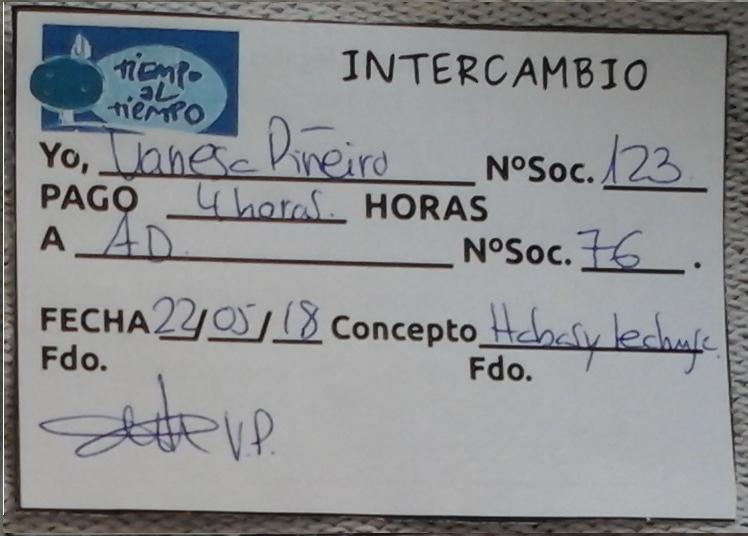 tiempo
al
tiempo
INTERCAMBIO
Yo, Vanesa Piñeiro NºSoc. 123
PAGO 4 horas. HORAS
A AD. NºSoc. 76.
FECHA 22/05/18 Concepto Habas y lechuga
Fdo. Fdo.
V.P.